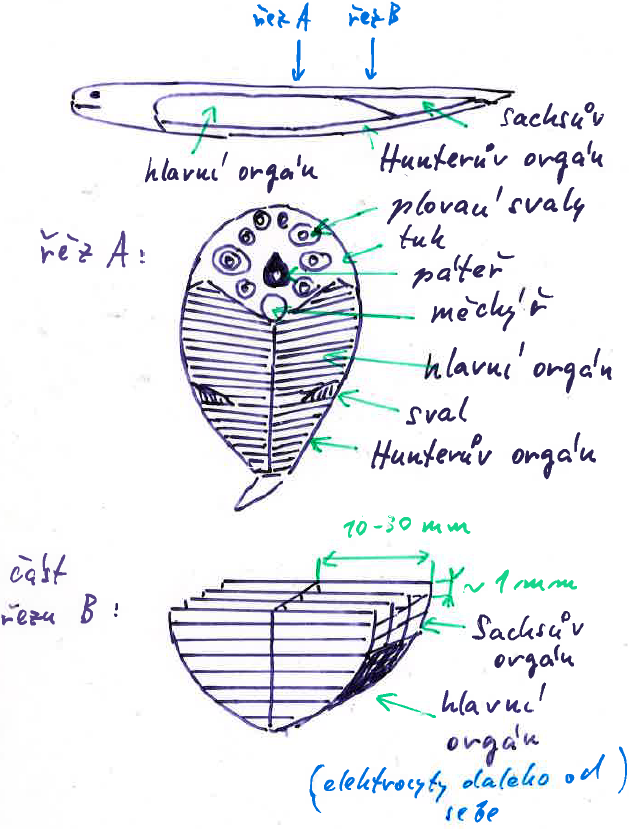 řez A řez B
Sachsův
Hunterův orgán
hlavní orgán
plovací svaly
řez A:
tuk
páteř
měchýř
hlavní orgán
sval
Hunterův orgán
10-30 mm
část
řezu B:
~1 mm
Sachsův
orgán
hlavní
orgán
(elektrocyty daleko od
sebe)